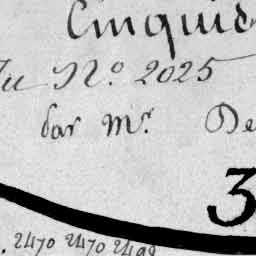 Cinquiè
du N.º 2025
par M.r De
3
. 2470 2470 2498